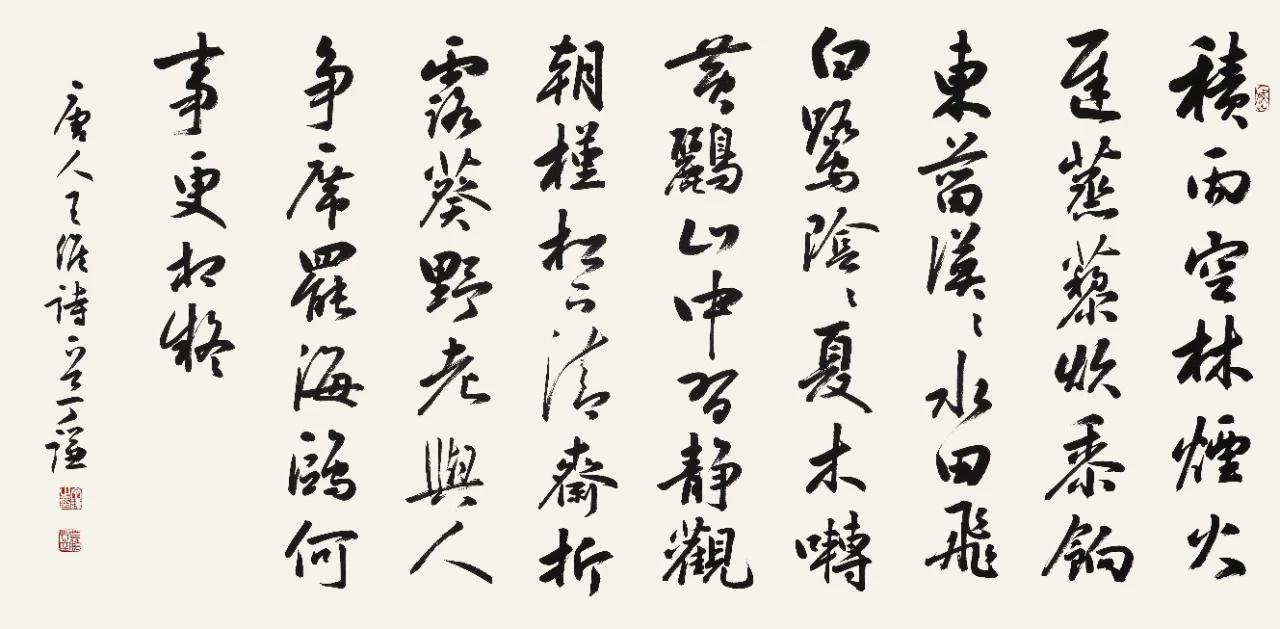 積雨空林煙火
遲蒸藜炊黍餉
東菑漠〻水田飛
白鷺陰〻夏木囀
黄鸝山中習静觀
朝槿松下清齋折
露葵野老與人
争席罷海鷗何
事更相疑
唐人王維詩 丁謙